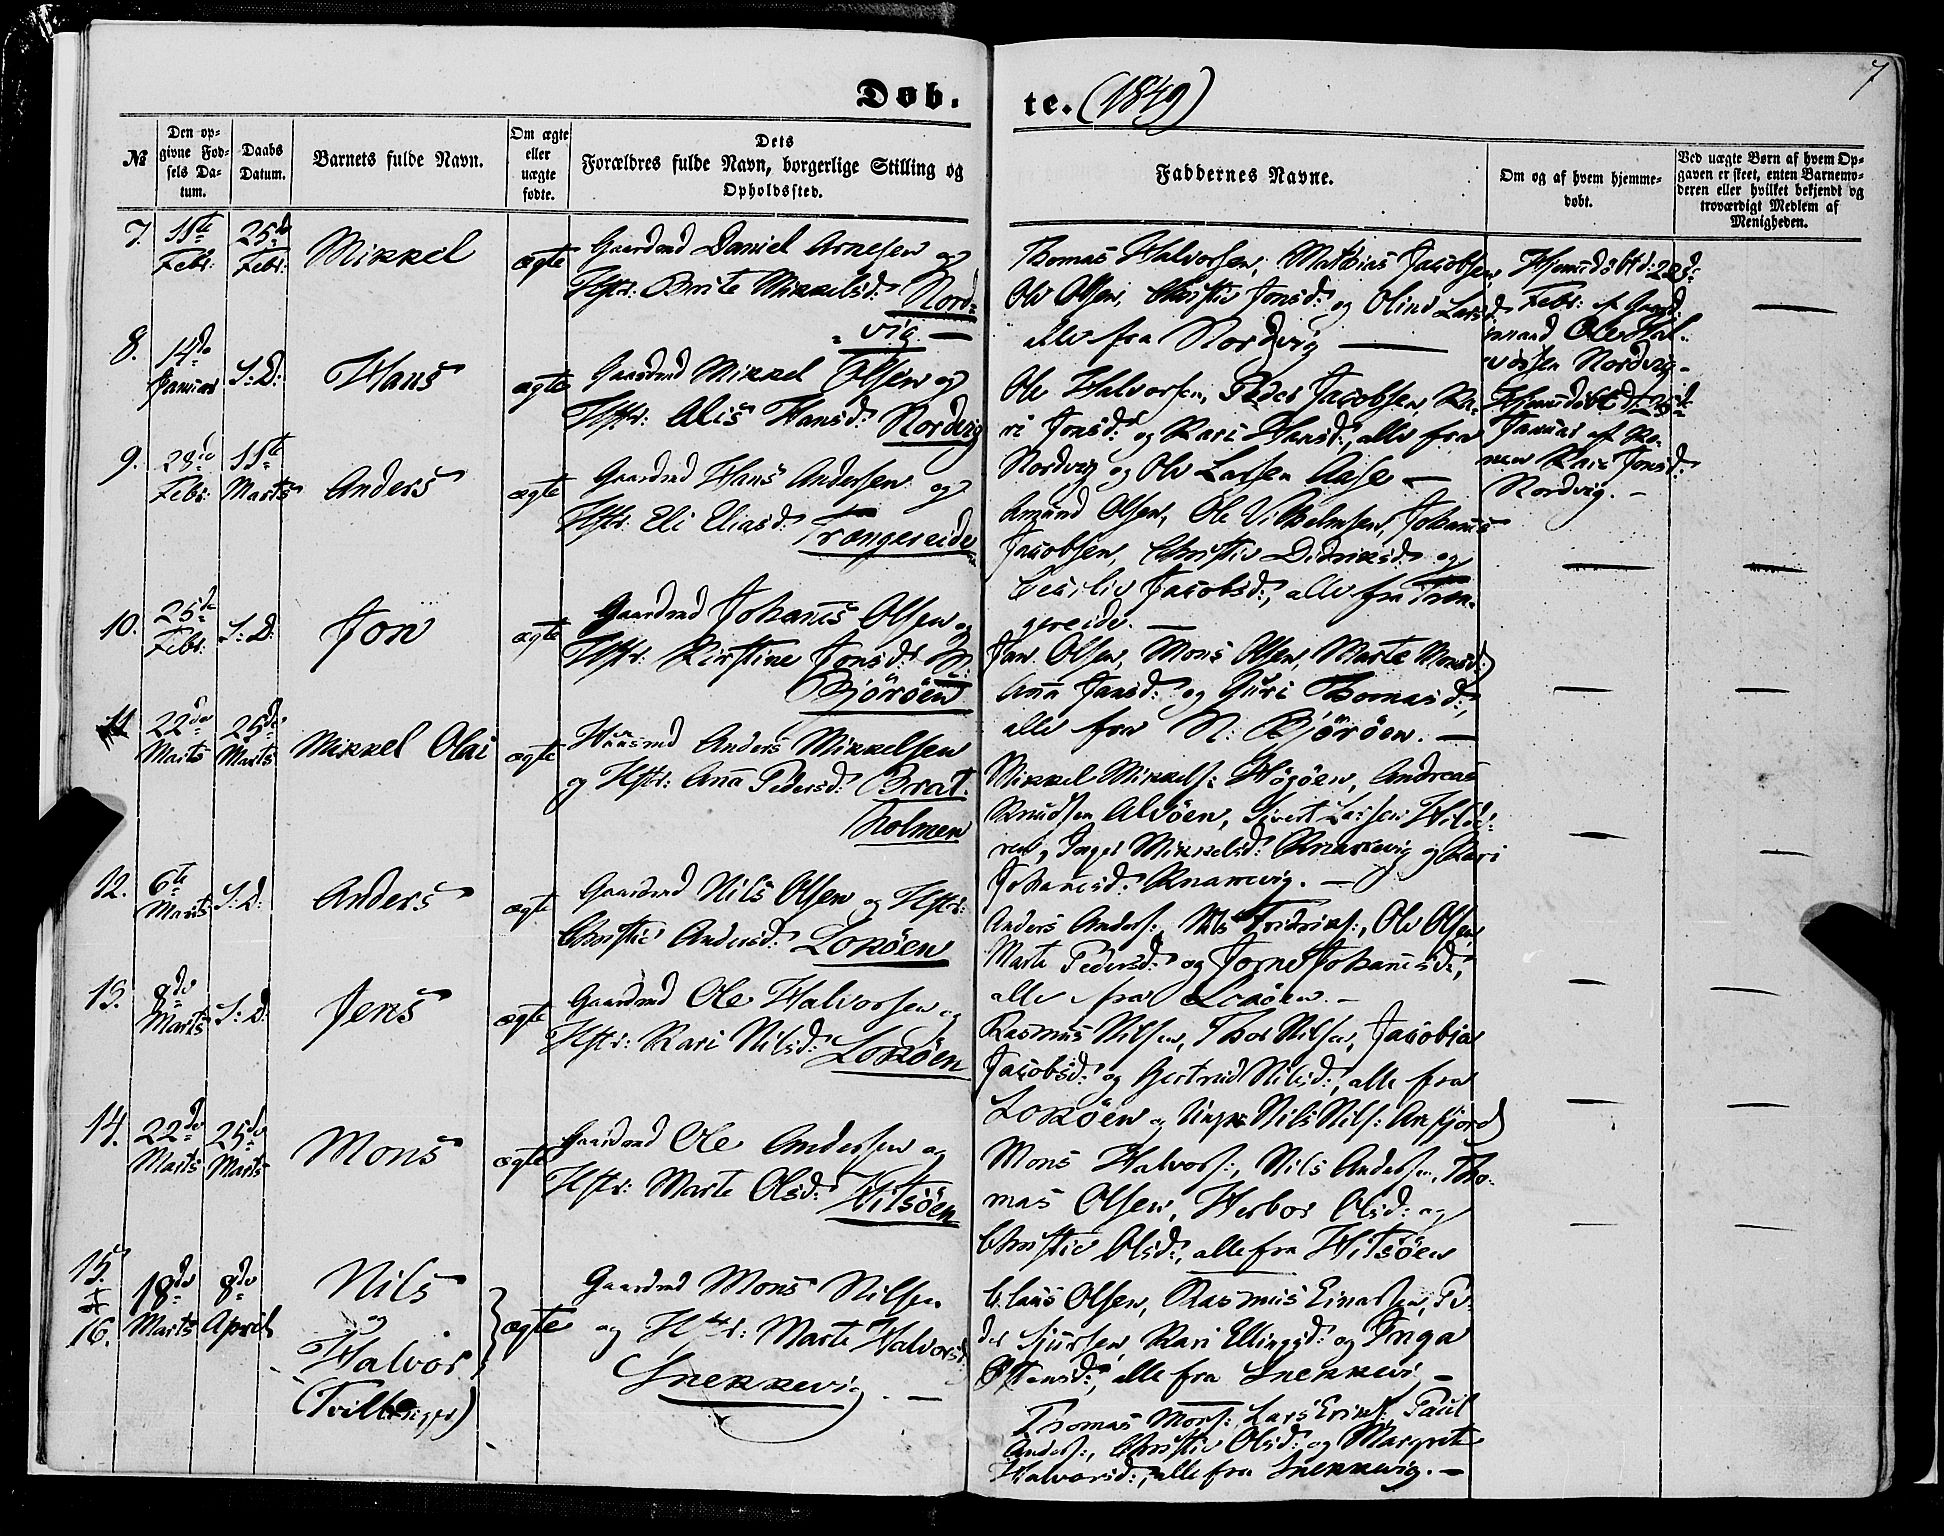 7
Døb.
te. (1849)
№
Den op-
givne Fød-
sels Da-
tum.
Daabs
Datum.
Barnets fulde Navn.
Om ægte
eller
uægte
fødte.
Dets
Forældres fulde Navn, borgerlige Stilling og
Opholdssted.
Faddernes Navne.
Om og af hvem hjemme-
døbt.
Ved uægte Børn af hvem Op-
gaven er skeet, enten Barnemo-
deren eller hvilket bekjendt og
troværdigt Medlem af
Menigheden.
7.
11te
Febr:
25de
Febr:
Mikkel
ægte
Gaardmd Daniel Arnesen og
Hstr: Brite Mikkelsd: Nord=
=vig. —
Thomas Halvorsen, Mathias Jacobsen,
Ole Olsen, Christie Jonsd: og Oline Larsd:
alle fra Nordvig —
Febr: af Gaard
mand Ole Hal-
vorsen Nordvig. —
8.
14de
Januar
S: D:
Hans
ægte
Gaardmd Mikkel Olsen og
Hstr: Alis Hansd: Nordvig
Ole Halvorsen, Peder Jacobsen, Ka-
ri Jonsd: og Kari Hansd:, alle fra
Nordvig og Ole Larsen Aase —
Januar af Ko-
nen Kari Jonsd:
Nordvig. —
9.
Febr:
11te
Marts
Anders
ægte
Gaardmd Hans Andersen og
Hstr: Eli Eliasd: Trængereide
Amund Olsen, Ole Vilhelmsen, Johannes
Jacobsen, Christie Didriksd: og
Cecilie Jacobsd:, alle fra Træn-
gereide. —
10.
25de
Febr:
S: D:
Jon
ægte
Gaardmd Johannes Olsen og
Hstr: Kirstine Jonsd: N:
Bjøröen
Jan Olsen, Mons Olsen, Marte Monsd:
Anna Jansd: og Guri Thomasd:,
alle fra N: Bjøröen. —
11
22de
Marts
25de
Marts
Mikkel Olai
ægte
Huusmd Anders Mikkelsen
og Hstr: Anna Pedersd: Brat-
holmen
Mikkel Mikkels: Høgöen, Andreas
Knudsen Alvöen, Sivert Larsen Hild-
ren, Inger Mikkelsd: Knarrevig og Kari
Johannesd: Knarrevig. —
12.
6te
Marts
S: D:
Anders
ægte
Gaardmd Nils Olsen og Hstr:
Christie Andersd: Loköen
Anders Anders:, Nils Fridriks:, Ole Olsen
Marte Pedersd: og Johannesd:,
alle fra Loköen. —
13.
Marts
S: D:
Jens
ægte
Gaardmd Ole Halvorsen og
Hstr: Kari Nilsd: Loköen
Rasmus Nilsen, Thor Nilsen, Jacobia
Jacobsd: og Gertrud Nilsd:, alle fra
Loköen og Nils Nils: Ansfjord
14.
22de
Marts
25de
Marts
Mons
ægte
Gaardmd Ole Andersen og
Hstr: Marte Olsd: Hitsöen
Mons Halvors:, Nils Andersen, Tho-
mas Olsen, Herbor Olsd: og
Christie Olsd:, alle fra Hitsöen
15.
&
16.
18de
Marts
8de
April
Nils
og
Halvor
(Tvillinger)
ægte
Gaardmd Mons Nilsen
og Hstr: Marte Halvorsd:
Snekkevig. —
Claus Olsen, Rasmus Einarsen, Pe-
der Sjursen, Kari Ellingsd: og Inga
alle fra Snekkevi —
Thomas Mons:, Lars Eriks:, Paul
Anders:, Christie Olsd: og Margrete
Halvorsd:, alle fra Snekkevig. —